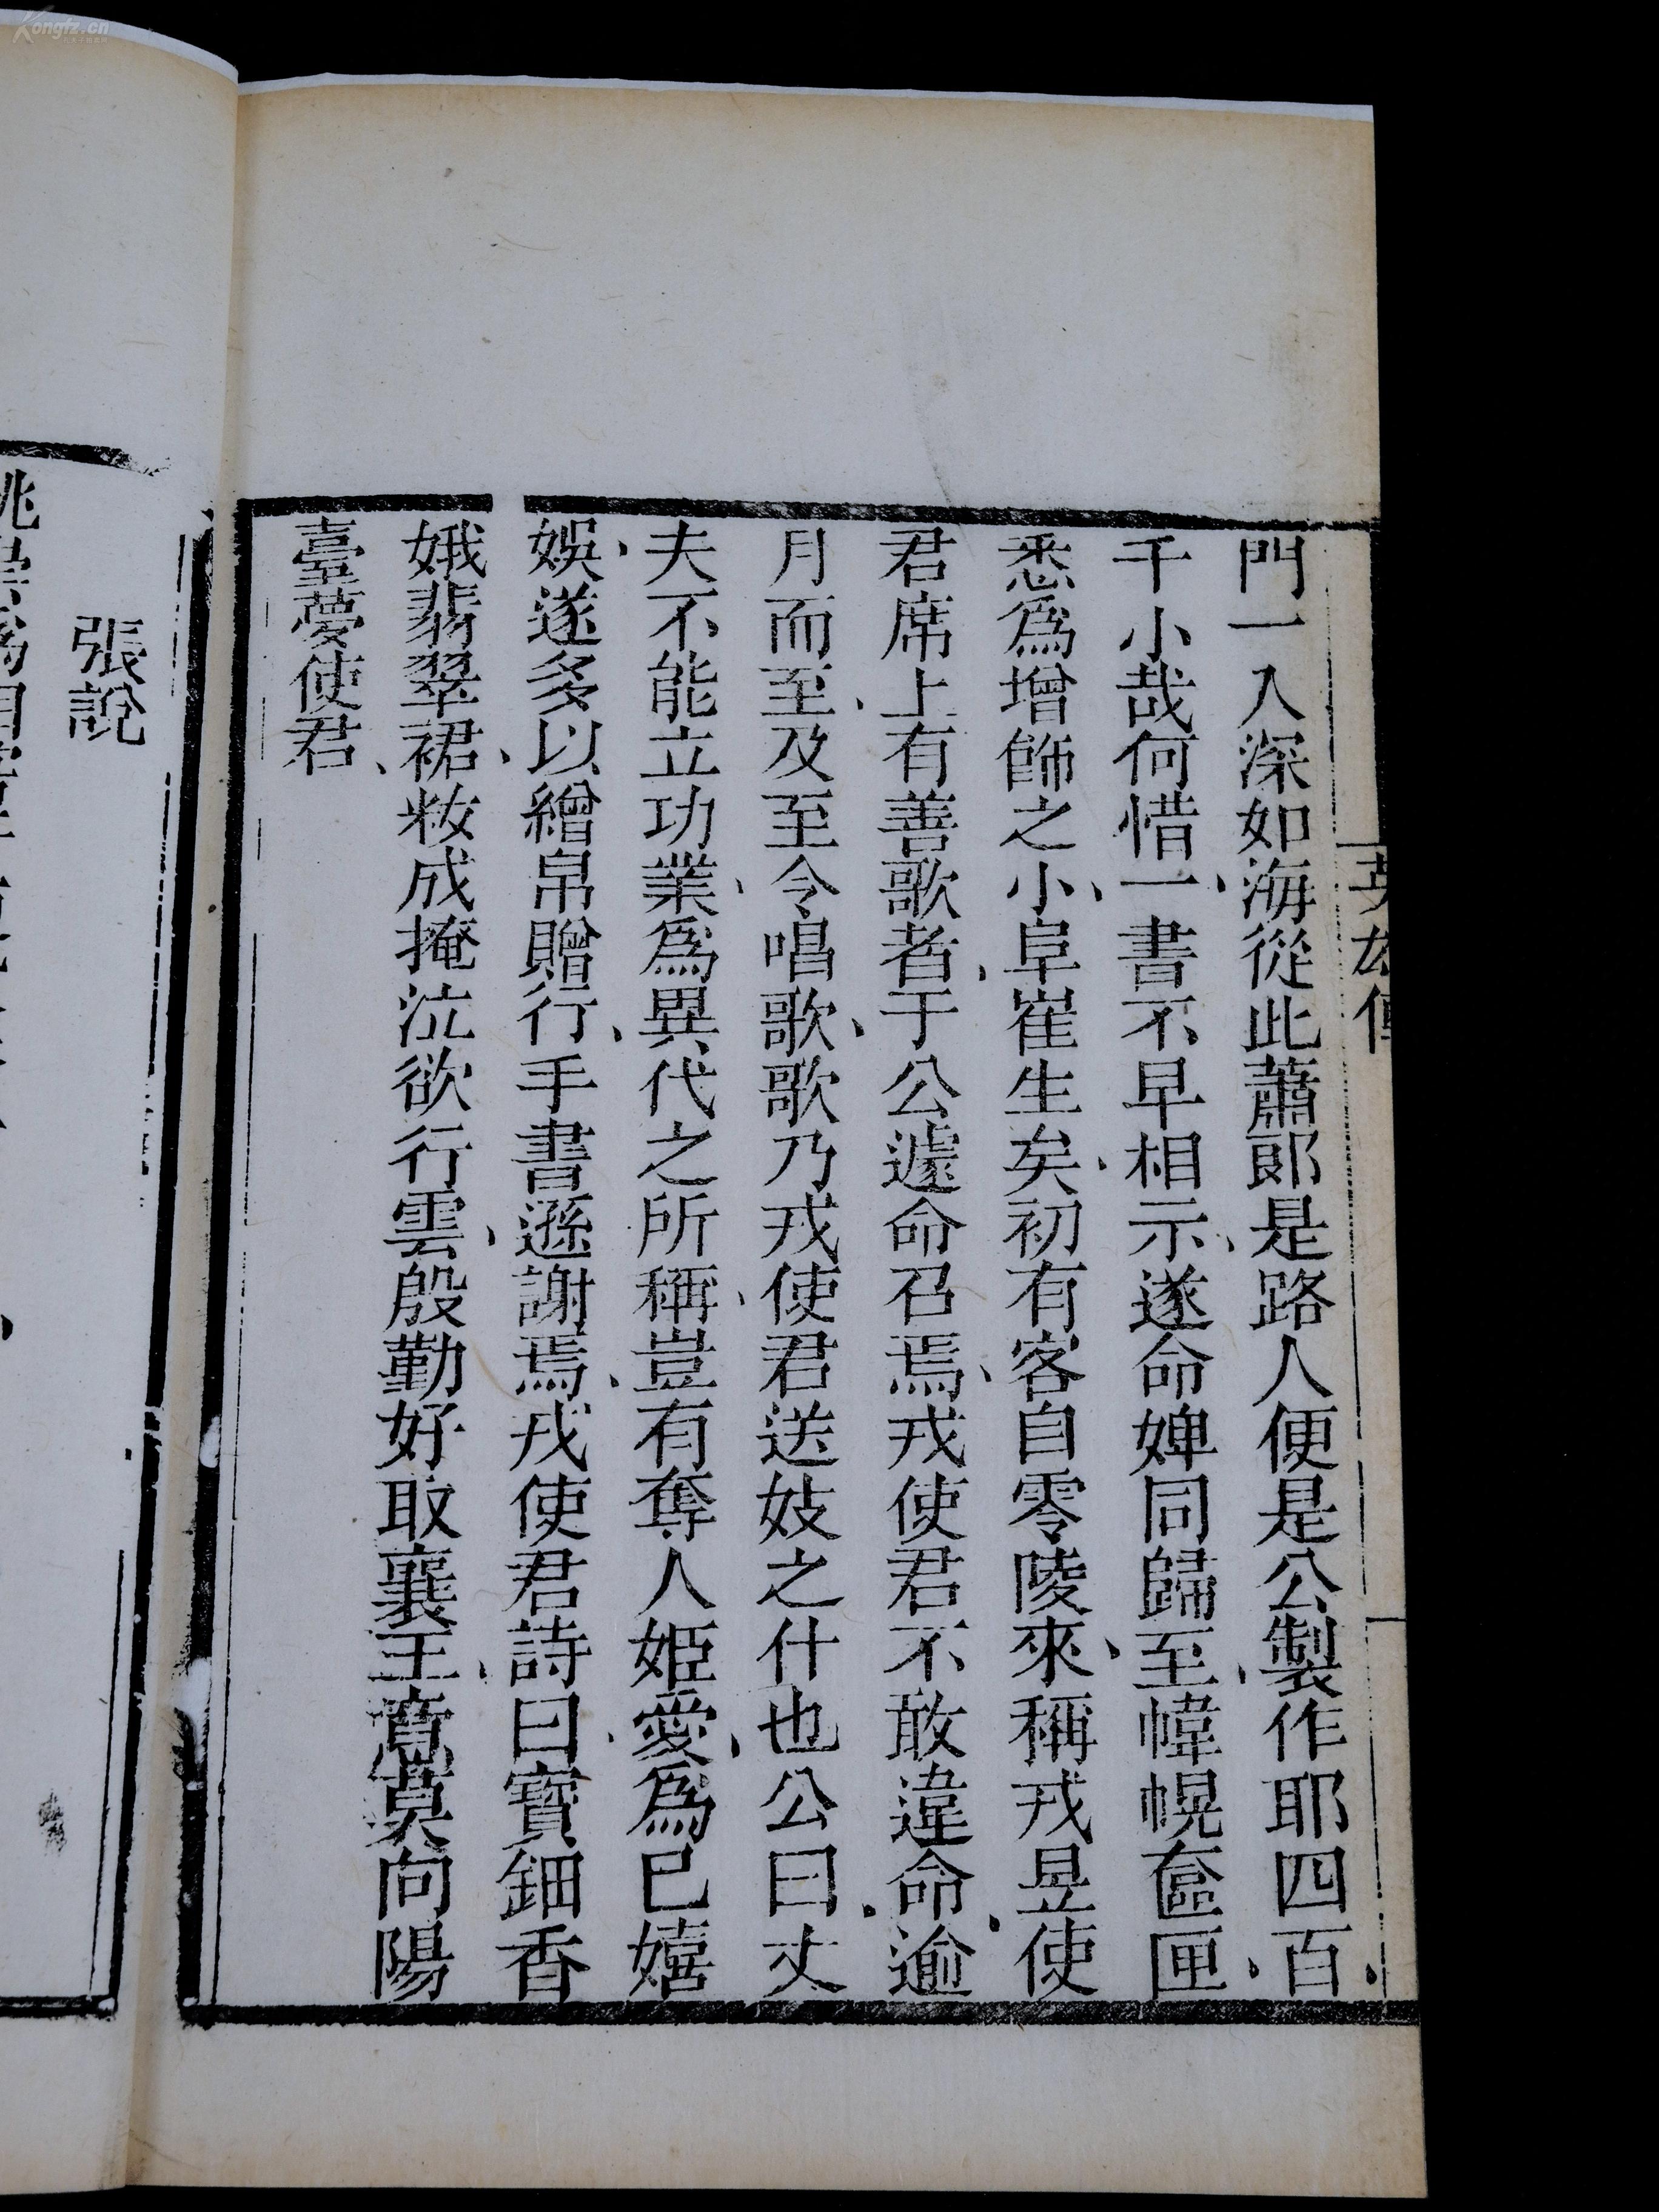 英雄傳
門一入深如海從此蕭郎是路人便是公製作耶四百
千小哉何惜一書不早相示遂命婢同歸至幃幌奩匣
悉為增飾之小阜崔生矣初有客自零陵來稱戎昱使
君席上有善歌者于公遽命召焉戎使君不敢違命逾
月而至及至令唱歌歌乃戎使君送妓之什也公曰丈
夫不能立功業為異代之所稱豈有奪人姬愛為已嬉
娛遂多以繒帛贈行手書遜謝焉戎使君詩曰寳鈿香
娥翡翠裙粧成掩泣欲行雲殷勤好取襄王意莫向陽
臺夢使君
張說
Kongfz.cn